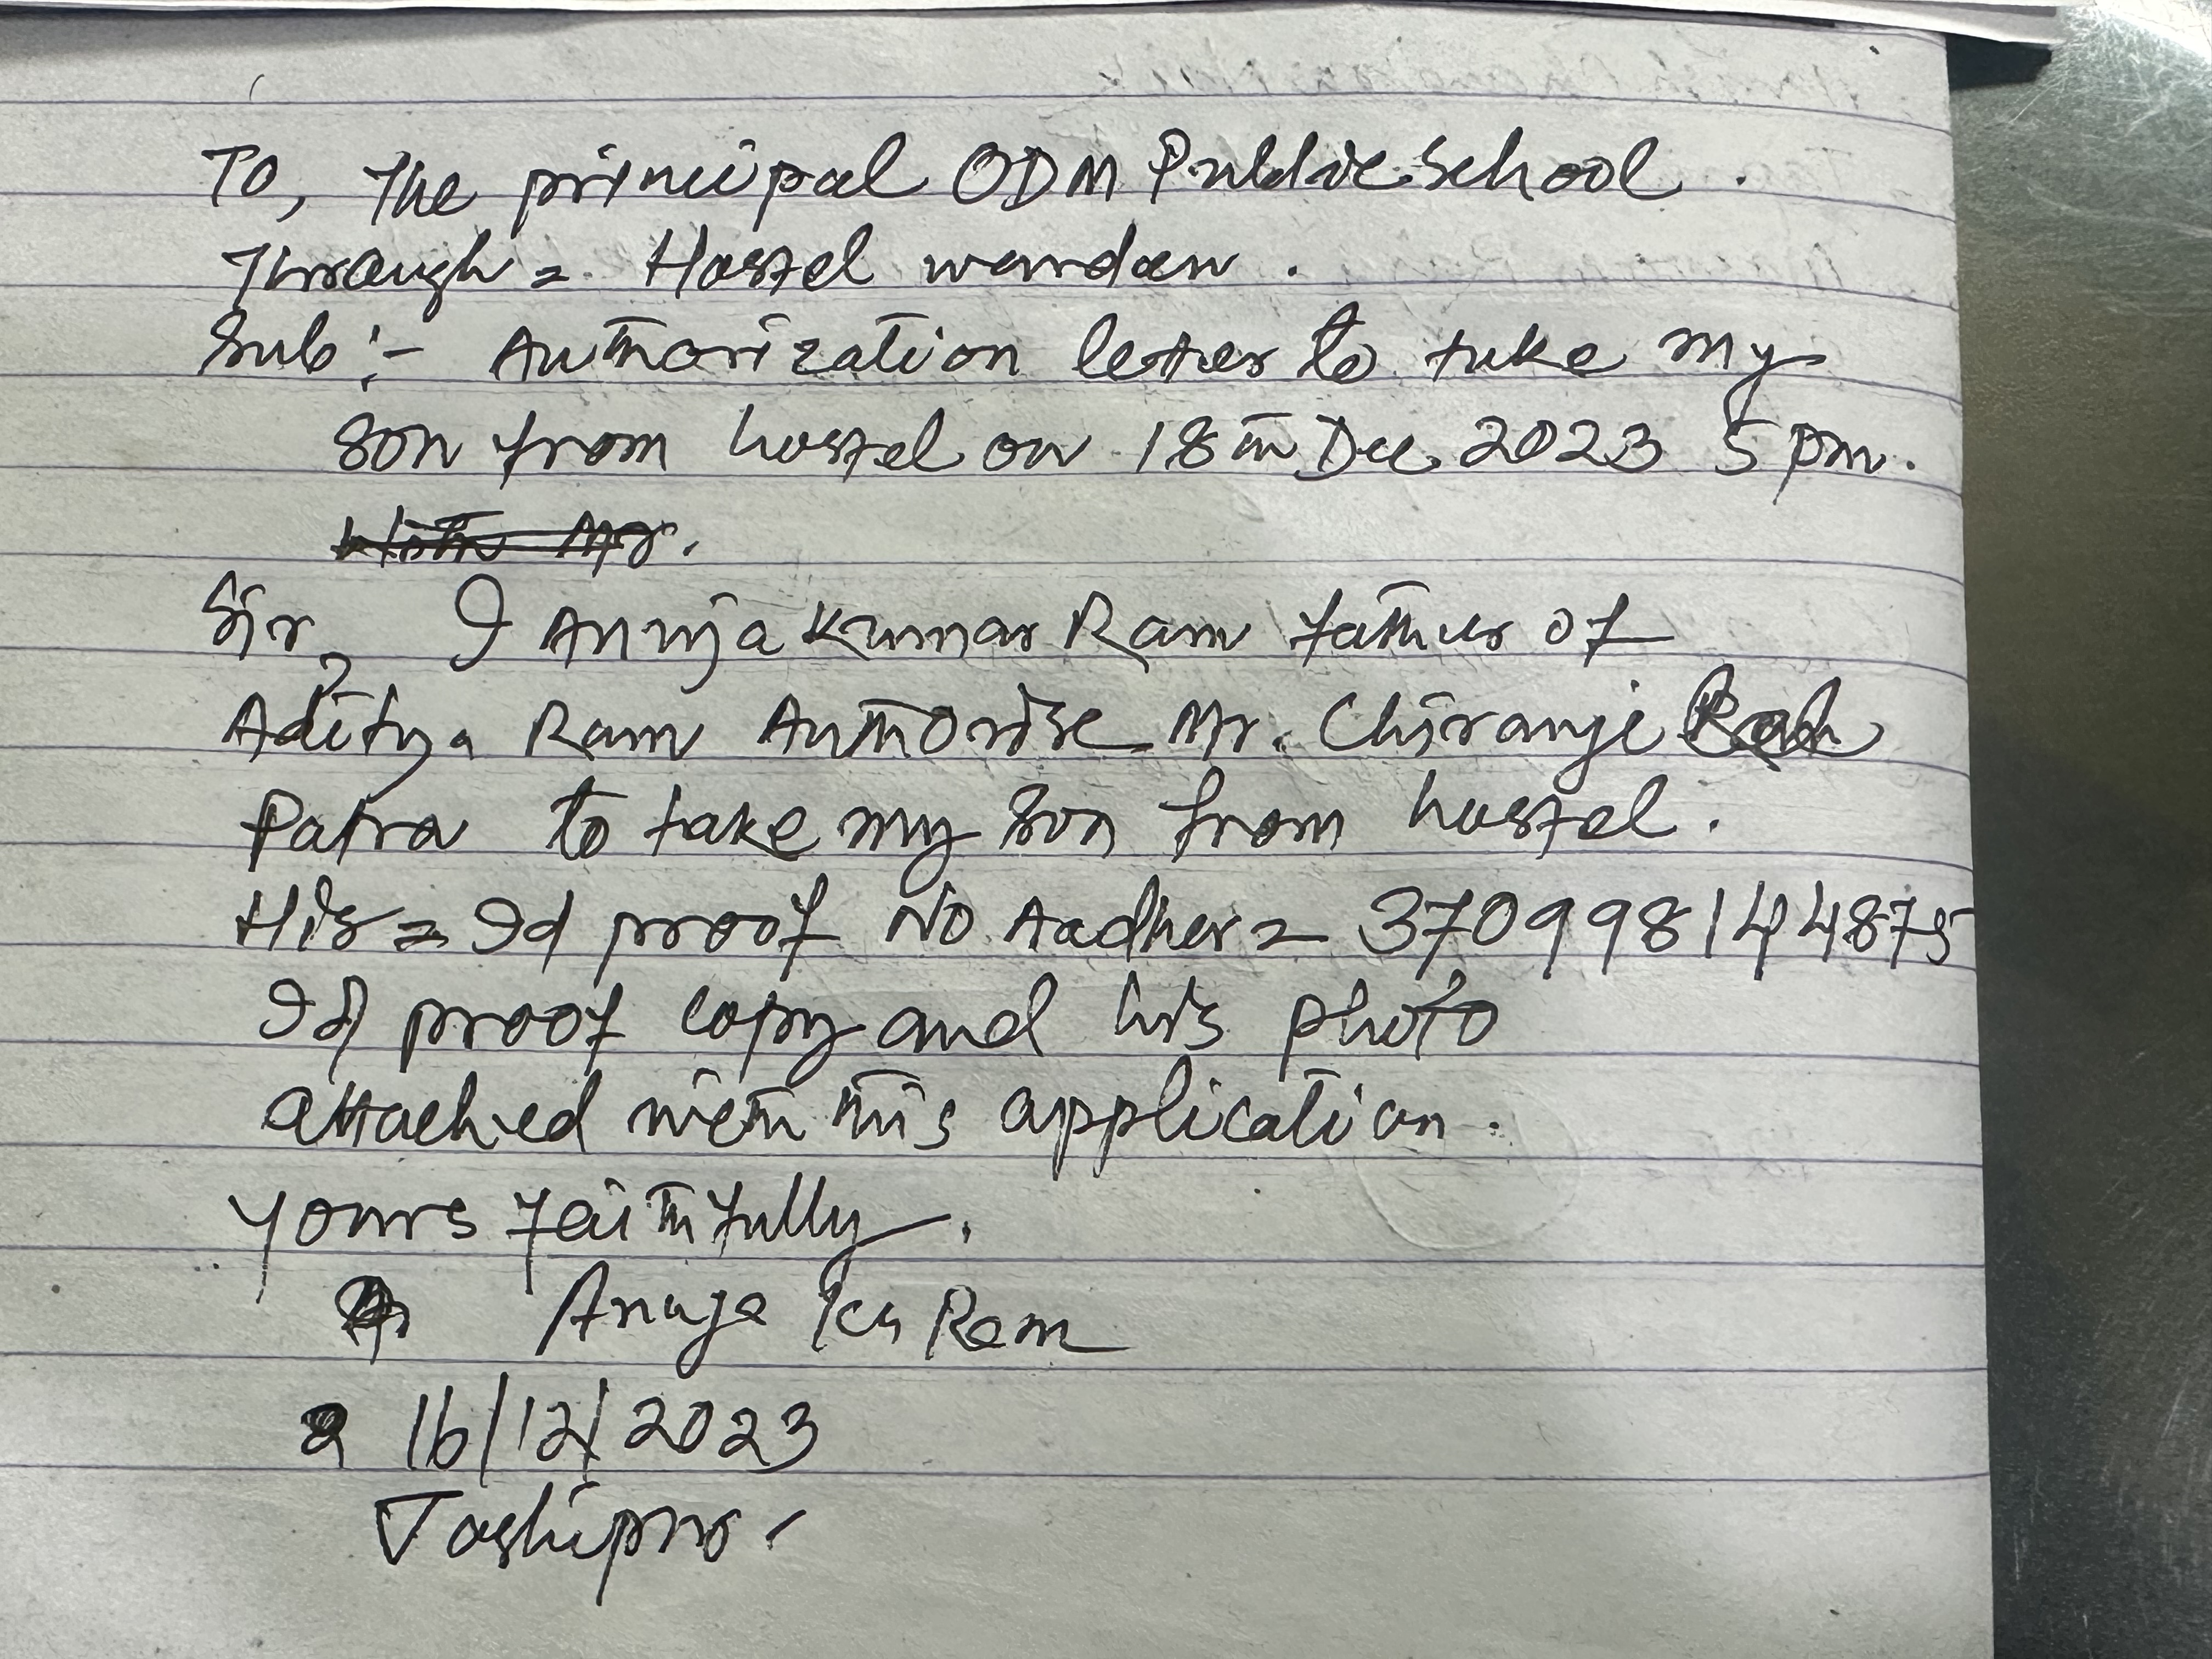 To, The principal ODM Public School.
Through = Hostel warden.
Sub :- Authorization letter to take my
son from hostel on 18th Dec 2023 5 pm.
With Mr.
Sir, I Anuja Kumar Ram father of
Aditya Ram Authorise Mr. Chiranji
Patra to take my son from hostel.
His = Id proof No Aadher = 370998144875
Id proof copy and his photo
attached with this application.
Yours faithfully.
Anuja Ku Ram
16/12/2023
Joshipur